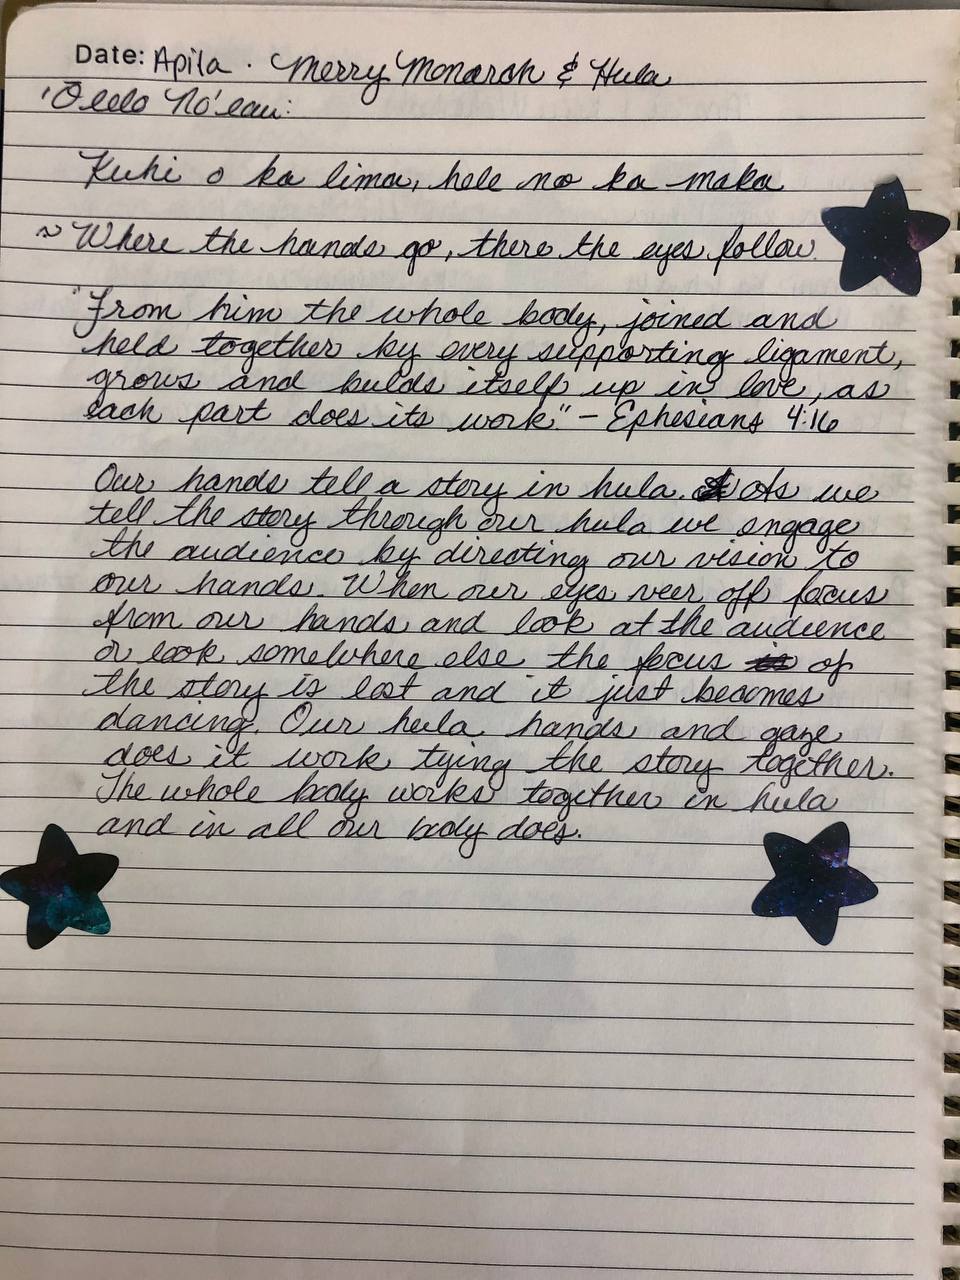 Date: Apila . Merry Monarch & Hula
'Ōlelo No'eau:
Kuhi o ka lima, hele no ka maka
~ Where the hands go, there the eyes follow.
"From him the whole body, joined and
held together by every supporting ligament,
grows and builds itself up in love, as
each part does its work" - Ephesians 4:16
Our hands tell a story in hula. As we
tell the story through our hula we engage
the audience by directing our vision to
our hands. When our eyes veer off focus
from our hands and look at the audience
or look somewhere else the focus of
the story is lost and it just becomes
dancing. Our hula hands and gaze
does it work tying the story together.
The whole body works together in hula
and in all our body does.